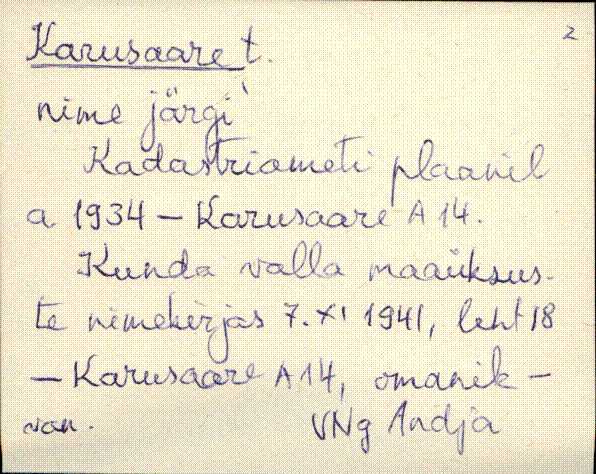 2
Karusaare t.
nime järgi
Kadastriameti plaanil
a 1934 – Karusaare A 14.
Kunda valla maaüksus-
te nimekirjas 7. XI 1941, leht 18
– Karusaare A 14, omanik –
VNg Andja